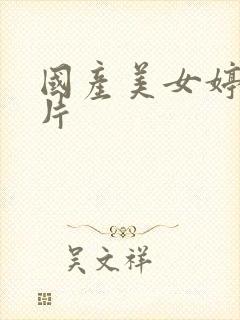 國產美女婷
片
吴文祥